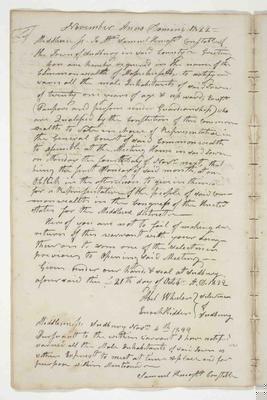 November Anno Domini 1822
Middlesex ss. To Mr. Samuel Constable of
the Town of Sudbury in said County Greeting
you are hereby required in the name of the
Commonwealth of Massachusetts to notify and
warn all the male Inhabitants of said Town
of twenty one years of age & upward, Except
Paupers and persons under Guardianship who
are Qualified by the Constitution of this Common
wealth to Vote in choice of Representative in
the General Court of said Commonwealth
to assemble at the Meeting House in said Town
on Monday the fourth day of Novr. next, that
being the first Monday of said month, at
OClock in the afternoon to give in their Votes
for a Representative of the people of said Com
monwealth in the Congress of the United
States for the Middlesex District
Hereof you are not to fail of making due
return of this warrant with your doings
thereon to some one of the Selectmen
previous to opening said Meeting
Given under our hand & seal at Sudbury
aforesaid this 21th day of Octbr. A.D. 1822
Selectmen
of
Sudbury
Middlesex ss Sudbury Novr. 4th
Pursuant to the within warrant I have notifid
warned all the Male Inhabitants of said Town as
within Express'd to meet at time & place and for
purpose within Mentioned
Samuel Constable